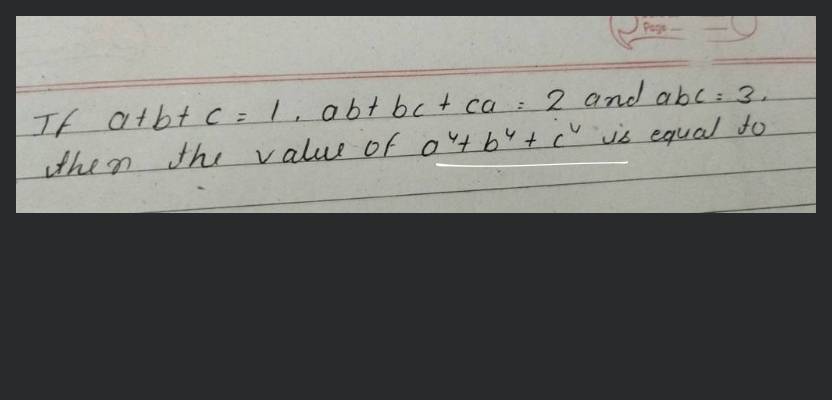 Page
If a+b+c = 1, ab+bc+ca = 2 and abc = 3.
then the value of a⁴+b⁴+c⁴ is equal to